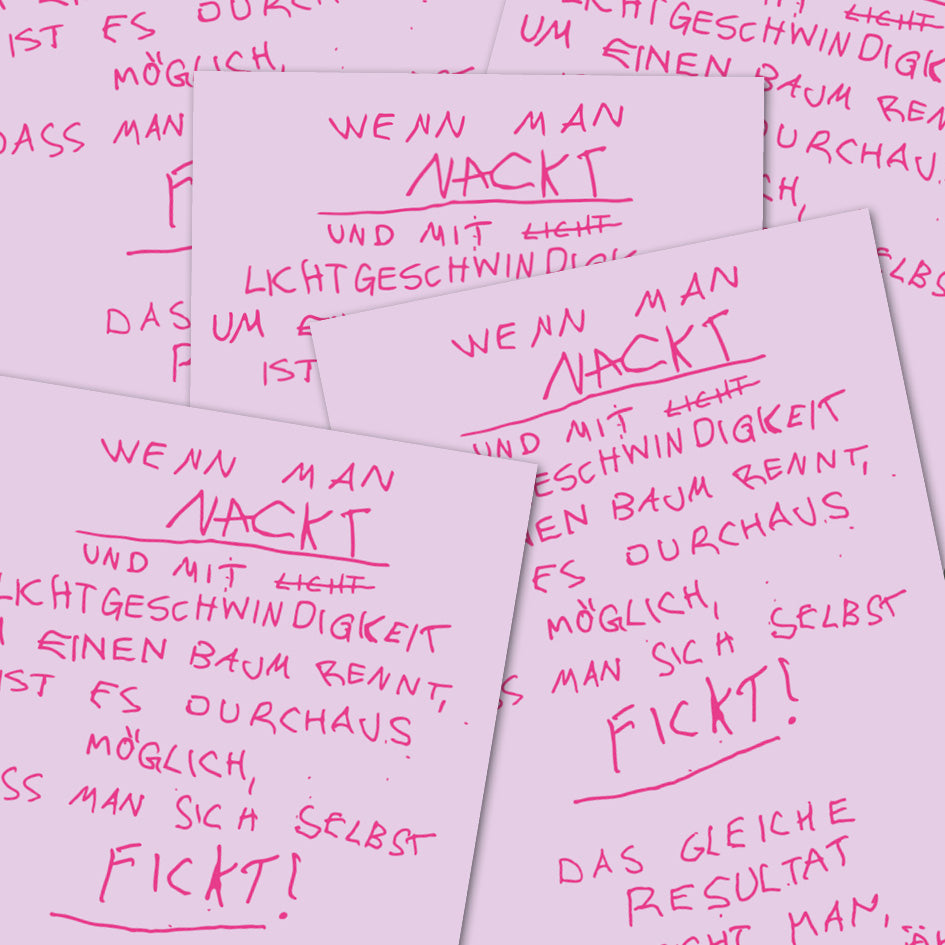 IST ES DURCH
MÖGLICH,
DASS MAN
F
DAS
R
LICHT
LICHTGESCHWINDIGK
UM EINEN BAUM REN
DURCHAU
CH,
ELBS
WENN MAN
NACKT
UND MIT LICHT
LICHTGESCHWINDIGK
UM E
IST
WENN MAN
NACKT
UND MIT LICHT
ESCHWINDIGKEIT
NEN BAUM RENNT,
ES DURCHAUS
MÖGLICH,
SS MAN SICH SELBST
FICKT!
DAS GLEICHE
RESULTAT
CHT MAN,
WENN MAN
NACKT
UND MIT LICHT
LICHTGESCHWINDIGKEIT
M EINEN BAUM RENNT,
IST ES DURCHAUS
MÖGLICH,
SS MAN SICH SELBST
FICKT!